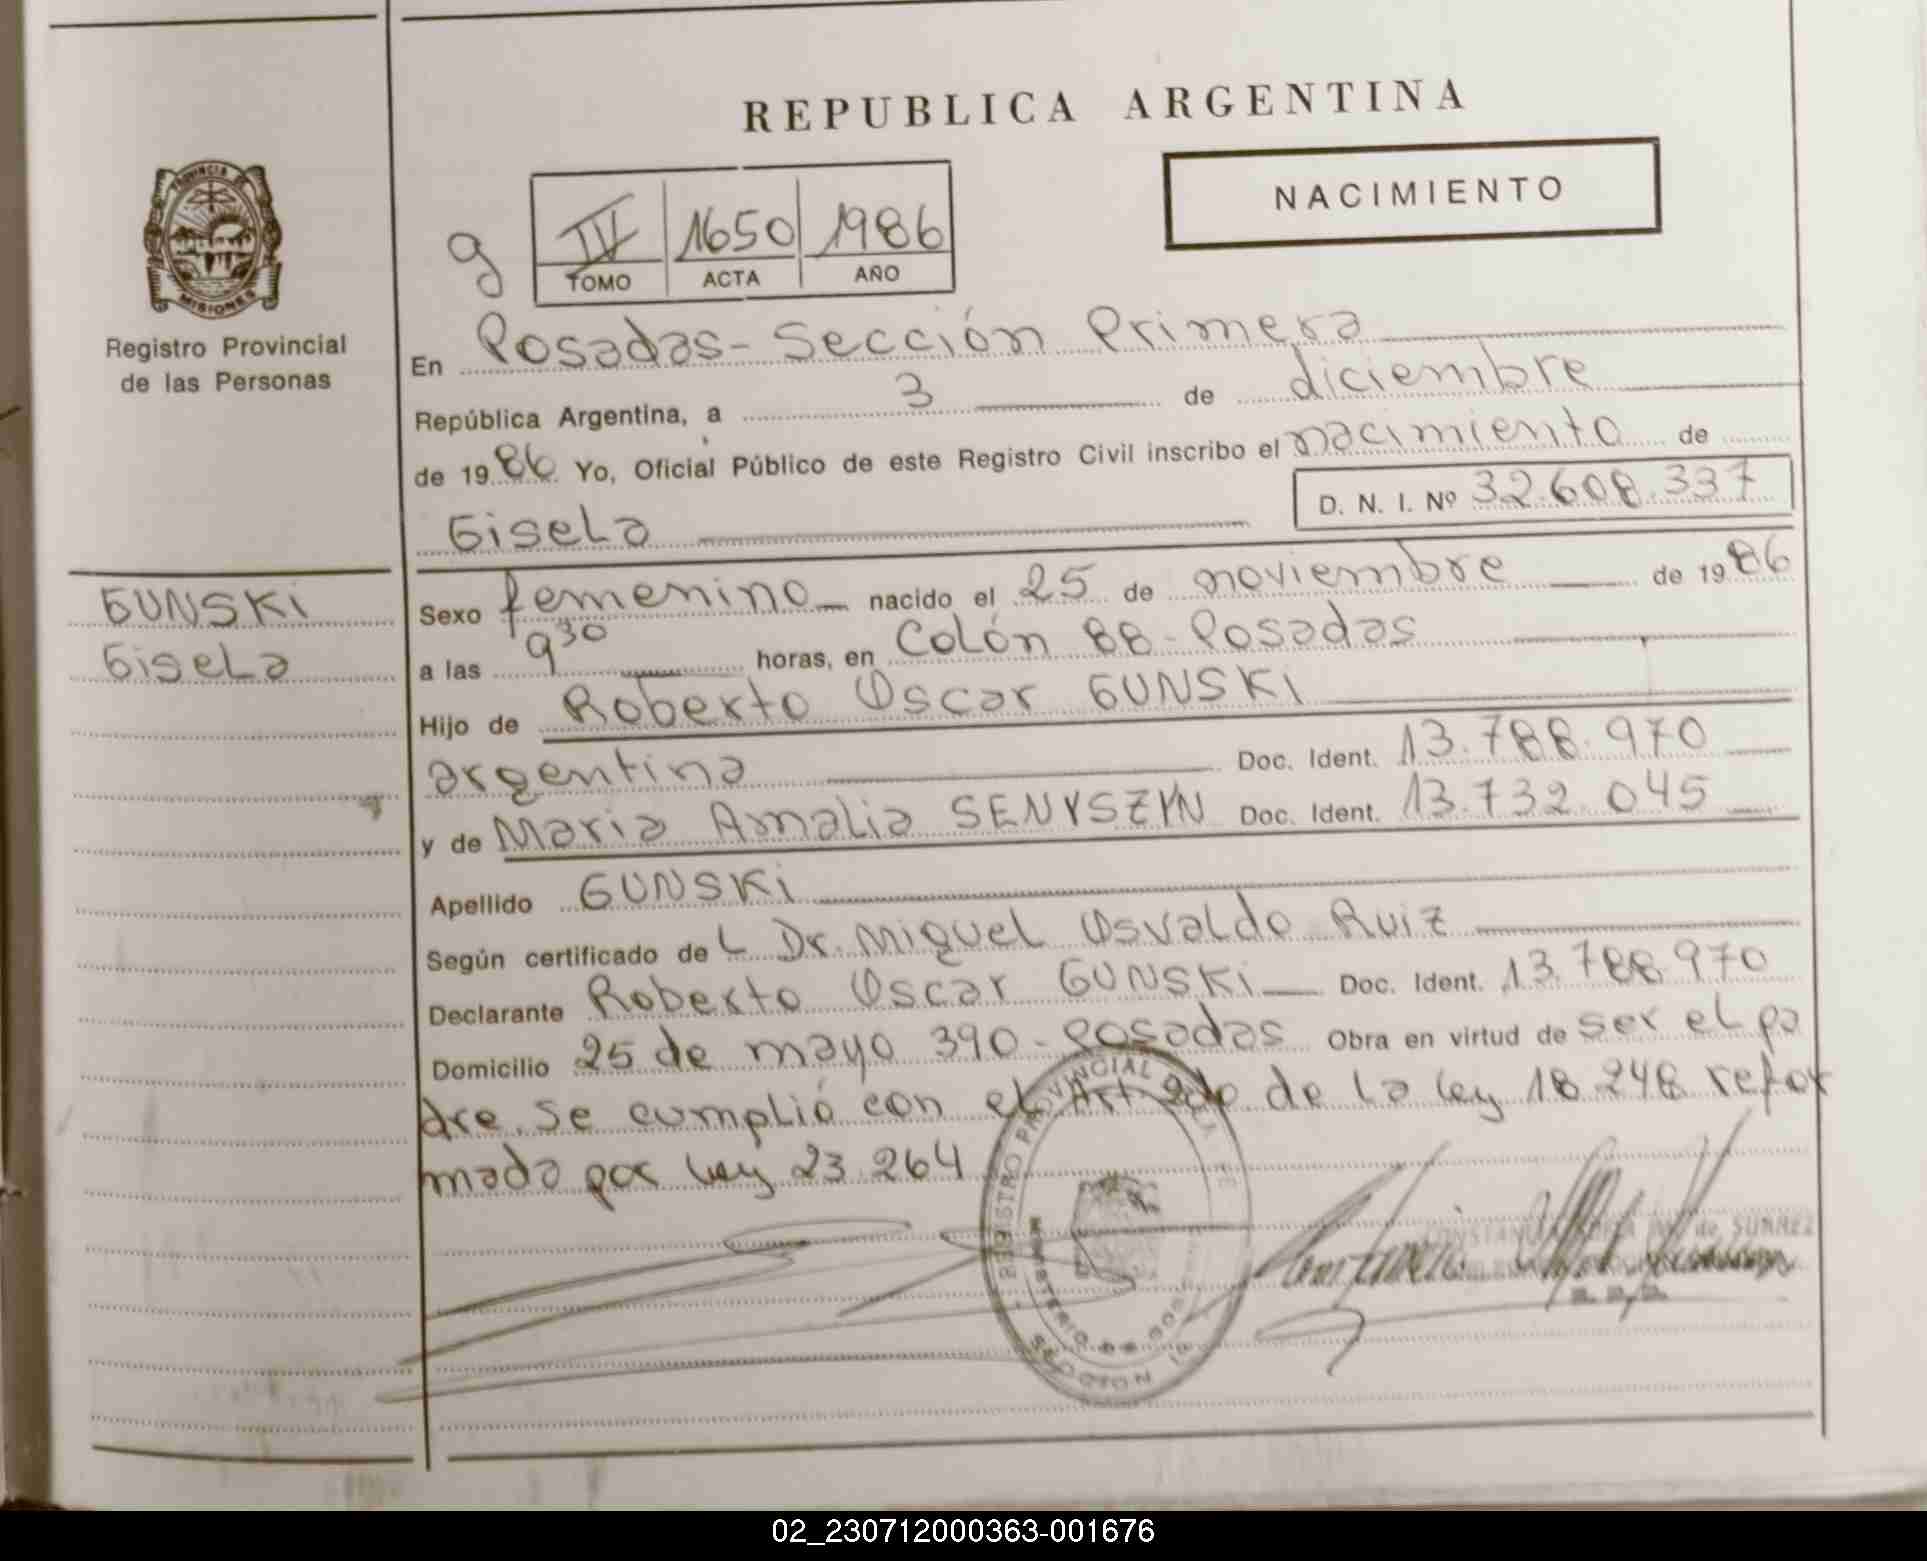 REPUBLICA ARGENTINA
NACIMIENTO
PROVINCIA DE
MISIONES
Registro Provincial
de las Personas
g
IV 1650 1986
TOMO ACTA AÑO
En Posadas - Sección Primera
República Argentina, a 3 de diciembre
de 1986 Yo, Oficial Público de este Registro Civil inscribo el nacimiento de
D. N. I. Nº 32.608.337
Gisela
GUNSKI
Gisela
Sexo femenino nacido el 25 de noviembre de 1986
a las 9 30 horas, en Colón 88 - Posadas
Hijo de Roberto Oscar GUNSKI
argentina Doc. Ident. 13.788.970
y de Maria Amalia SENYSZYN Doc. Ident. 13.732.045
Apellido GUNSKI
Según certificado de L Dr. Miguel Osvaldo Ruiz
Declarante Roberto Oscar GUNSKI Doc. Ident. 13.788.970
Domicilio 25 de mayo 390 - Posadas Obra en virtud de ser el pa
dre. Se cumplió con el Art 2do de la ley 18.248 refor
mada por ley 23.264
REGISTRO PROVINCIAL
MINISTERIO DE
SECCION 1
de SUAREZ
02_230712000363-001676